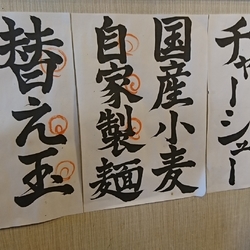 チャーシュー
国産小麦
自家製麺
替え玉